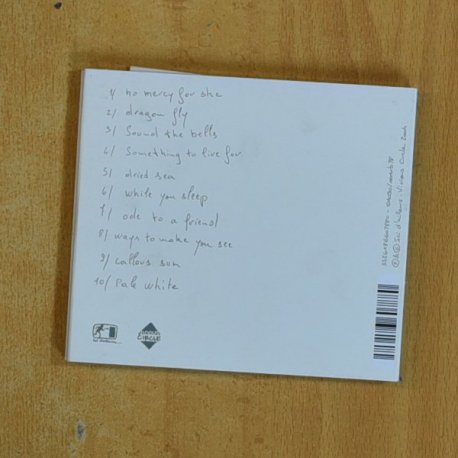 1/ no mercy for she
2/ dragon fly
3/ Sound the bells
4/ Something to live for
5/ dried sea
6/ while you sleep
7/ ode to a friend
8/ ways to make you see
9/ callous sun
10/ Pale white
CIRCLE